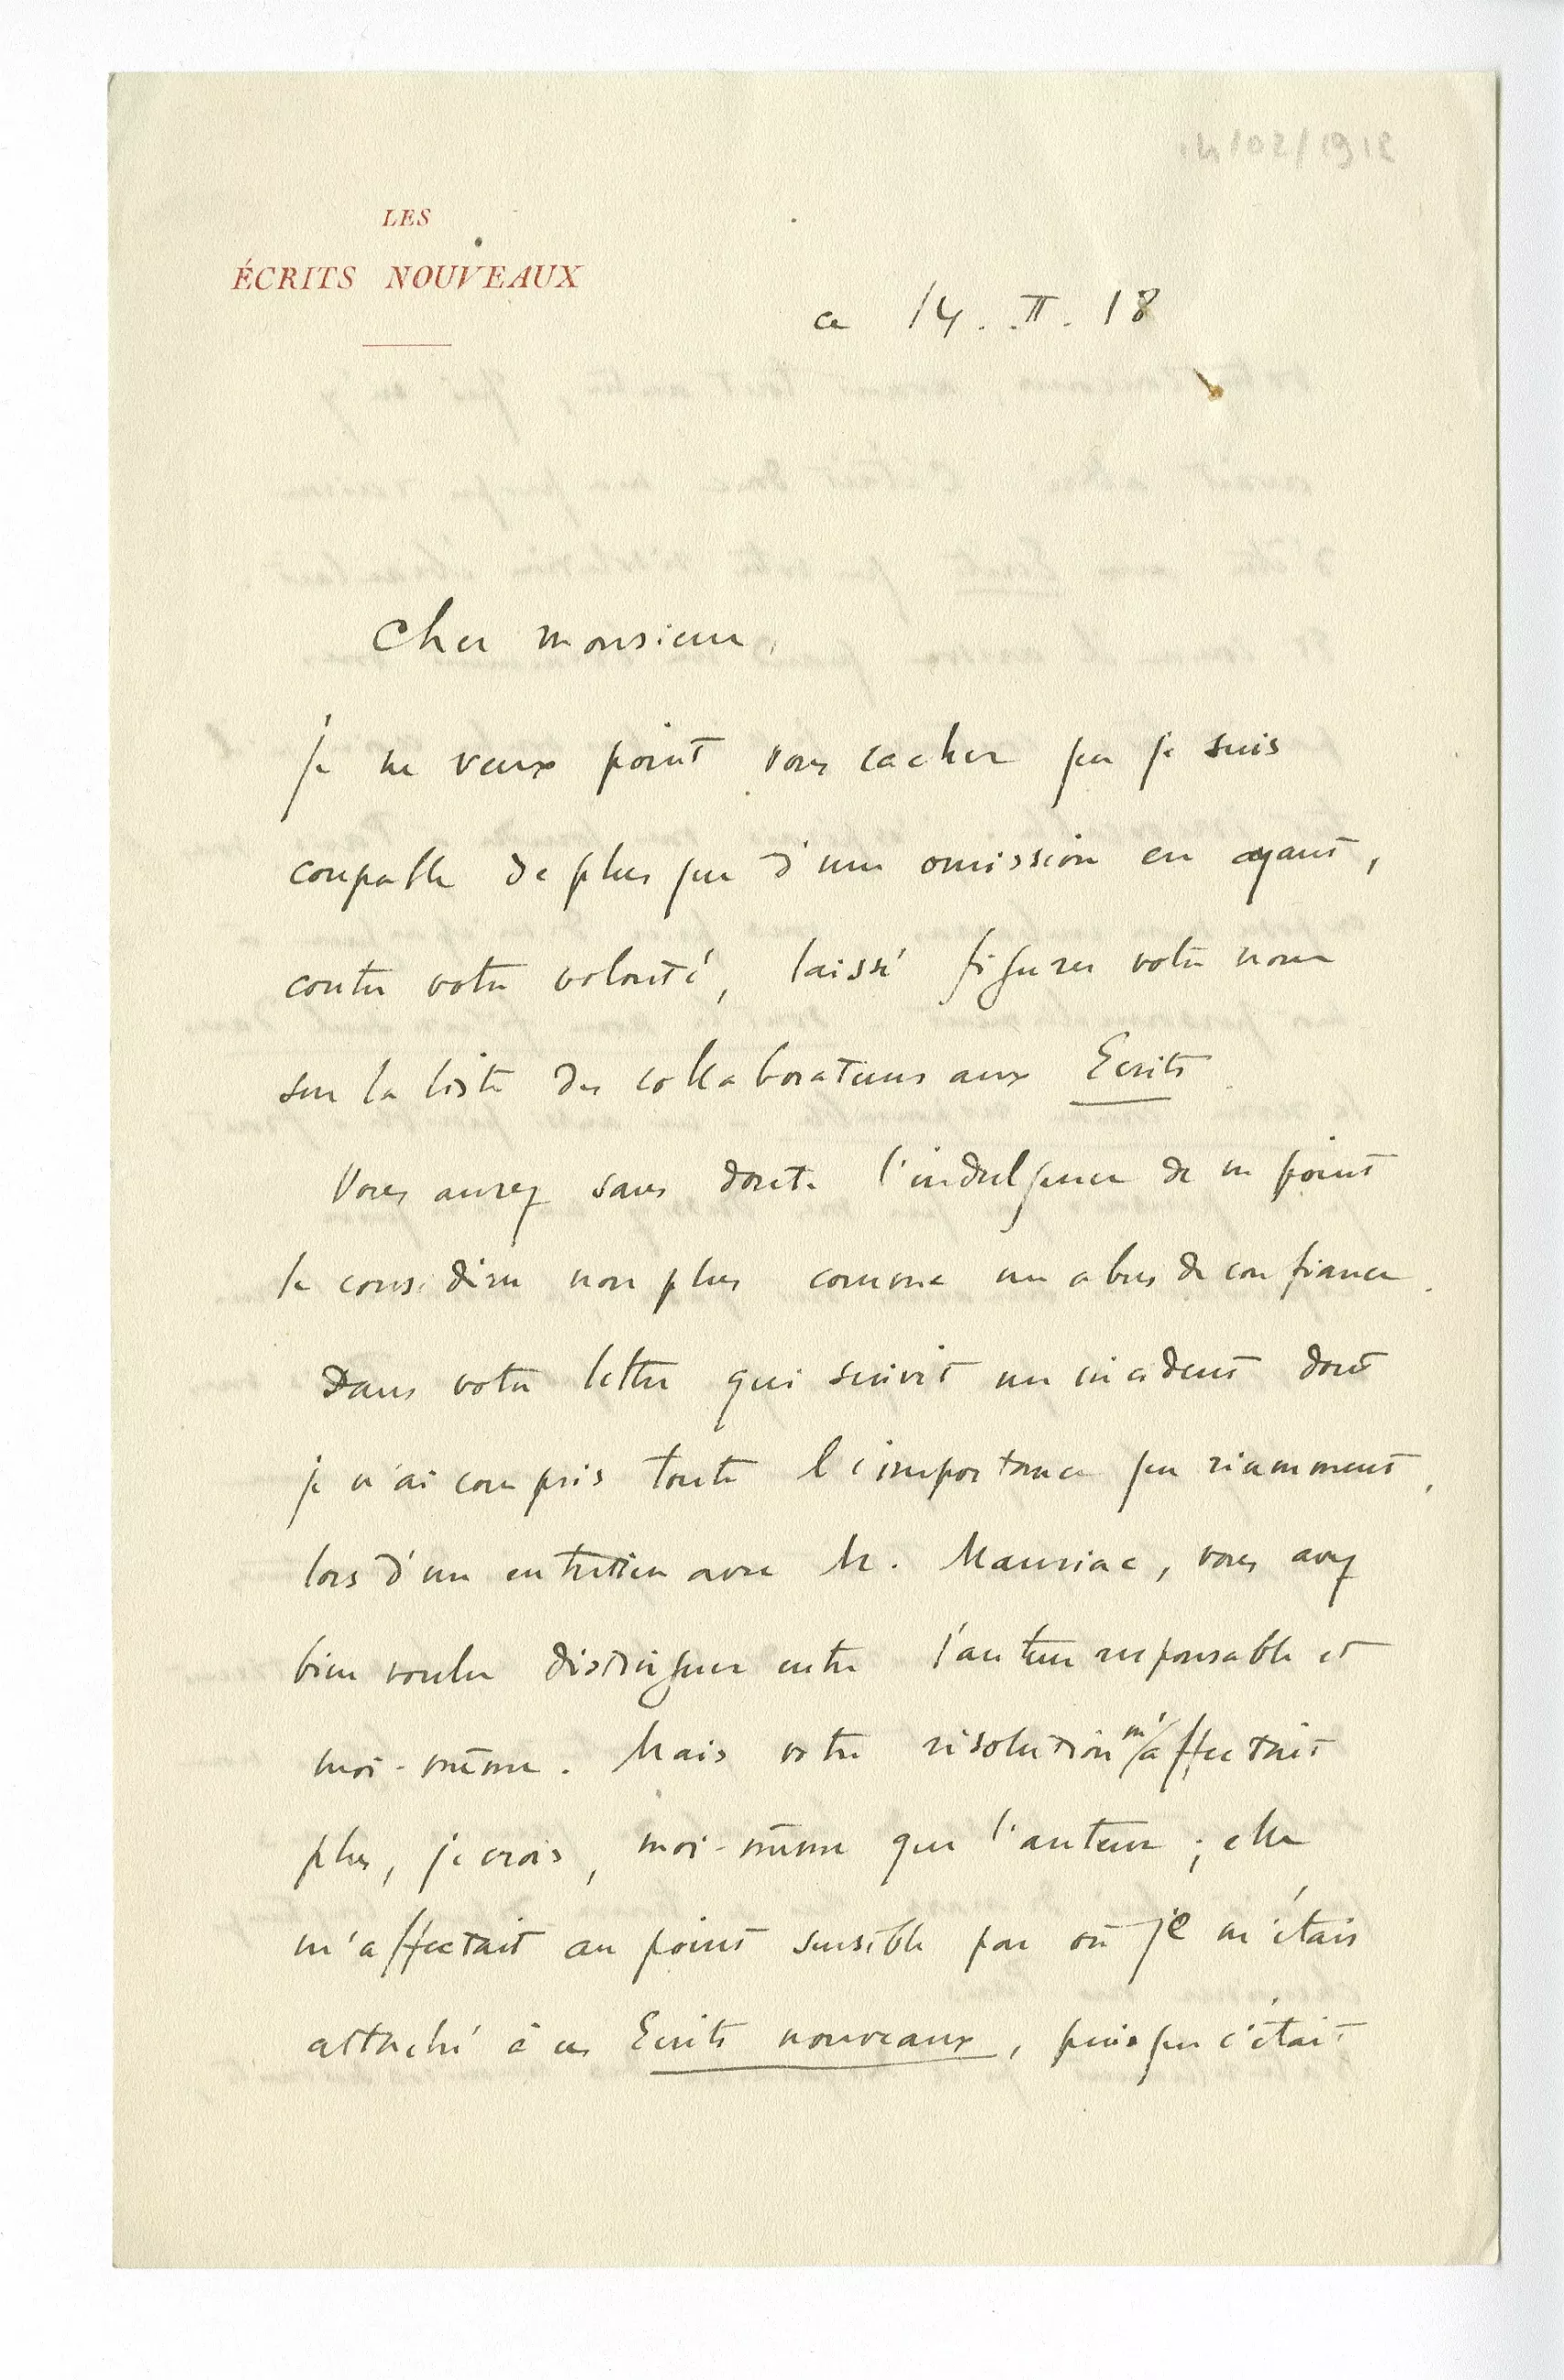 14/02/1918
LES
ÉCRITS NOUVEAUX
ce 14. II. 18
Cher monsieur,
Je ne veux point vous cacher que je suis
coupable de plus que d'une omission en ayant,
contre votre volonté, laissé figurer votre nom
sur la liste des collaborateurs aux Ecrits.
Vous aurez sans doute l'indulgence de ne point
le considérer non plus comme un abus de confiance.
Dans votre lettre qui suivit un incident dont
je n'ai compris toute l'importance que récemment,
lors d'un entretien avec M. Mauriac, vous avez
bien voulu distinguer entre l'auteur responsable et
moi-même. Mais votre résolution m'affectait
plus, je crois, moi-même que l'auteur ; elle
m'affectait au point sensible par où je m'étais
attaché à ces Ecrits nouveaux, puisque c'était